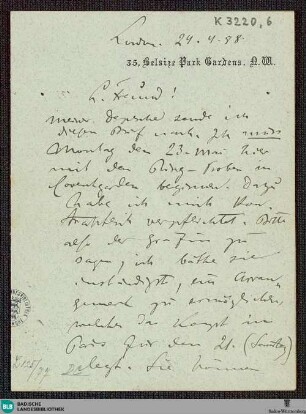 K 3220,6
London. 24.4.98.
35, Belsize Park Gardens. N.W.
L. Freund!
meiner Depesche sende ich
diesen Brief nach. Ich muß
Montag den 23. Mai hier
mit den Ring-Proben in
Coventgarden beginnen. Dazu
habe ich mich kon-
traktlich verpflichtet. Bitte
also der Gräfin zu
sagen, ich bäthe sie
inständigst, ein Arran-
gement zu ermöglichen,
welches das Konzert in
Paris für den 21. (Samstag)
zulegt. Sie können
BLB BADISCHE
LANDESBIBLIOTHEK
Baden-Württemberg